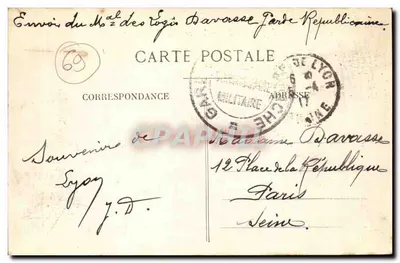 Envoi du Mal des Logis Davasse Garde Republicaine.
69
CARTE POSTALE
CORRESPONDANCE
ADRESSE
GARE DE LYON
MILITAIRE
Souvenirs de
Lyon
J.D.
Madame Davasse
12 Place de la République
Paris
Seine